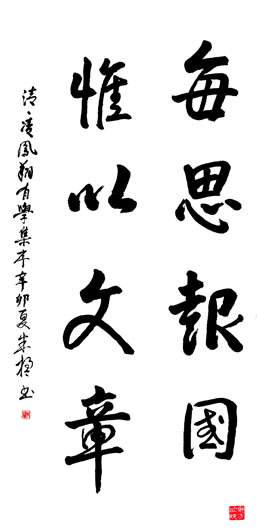 每思報國
惟以文章
清·陸鳳翔有學集本辛卯夏朱楷书